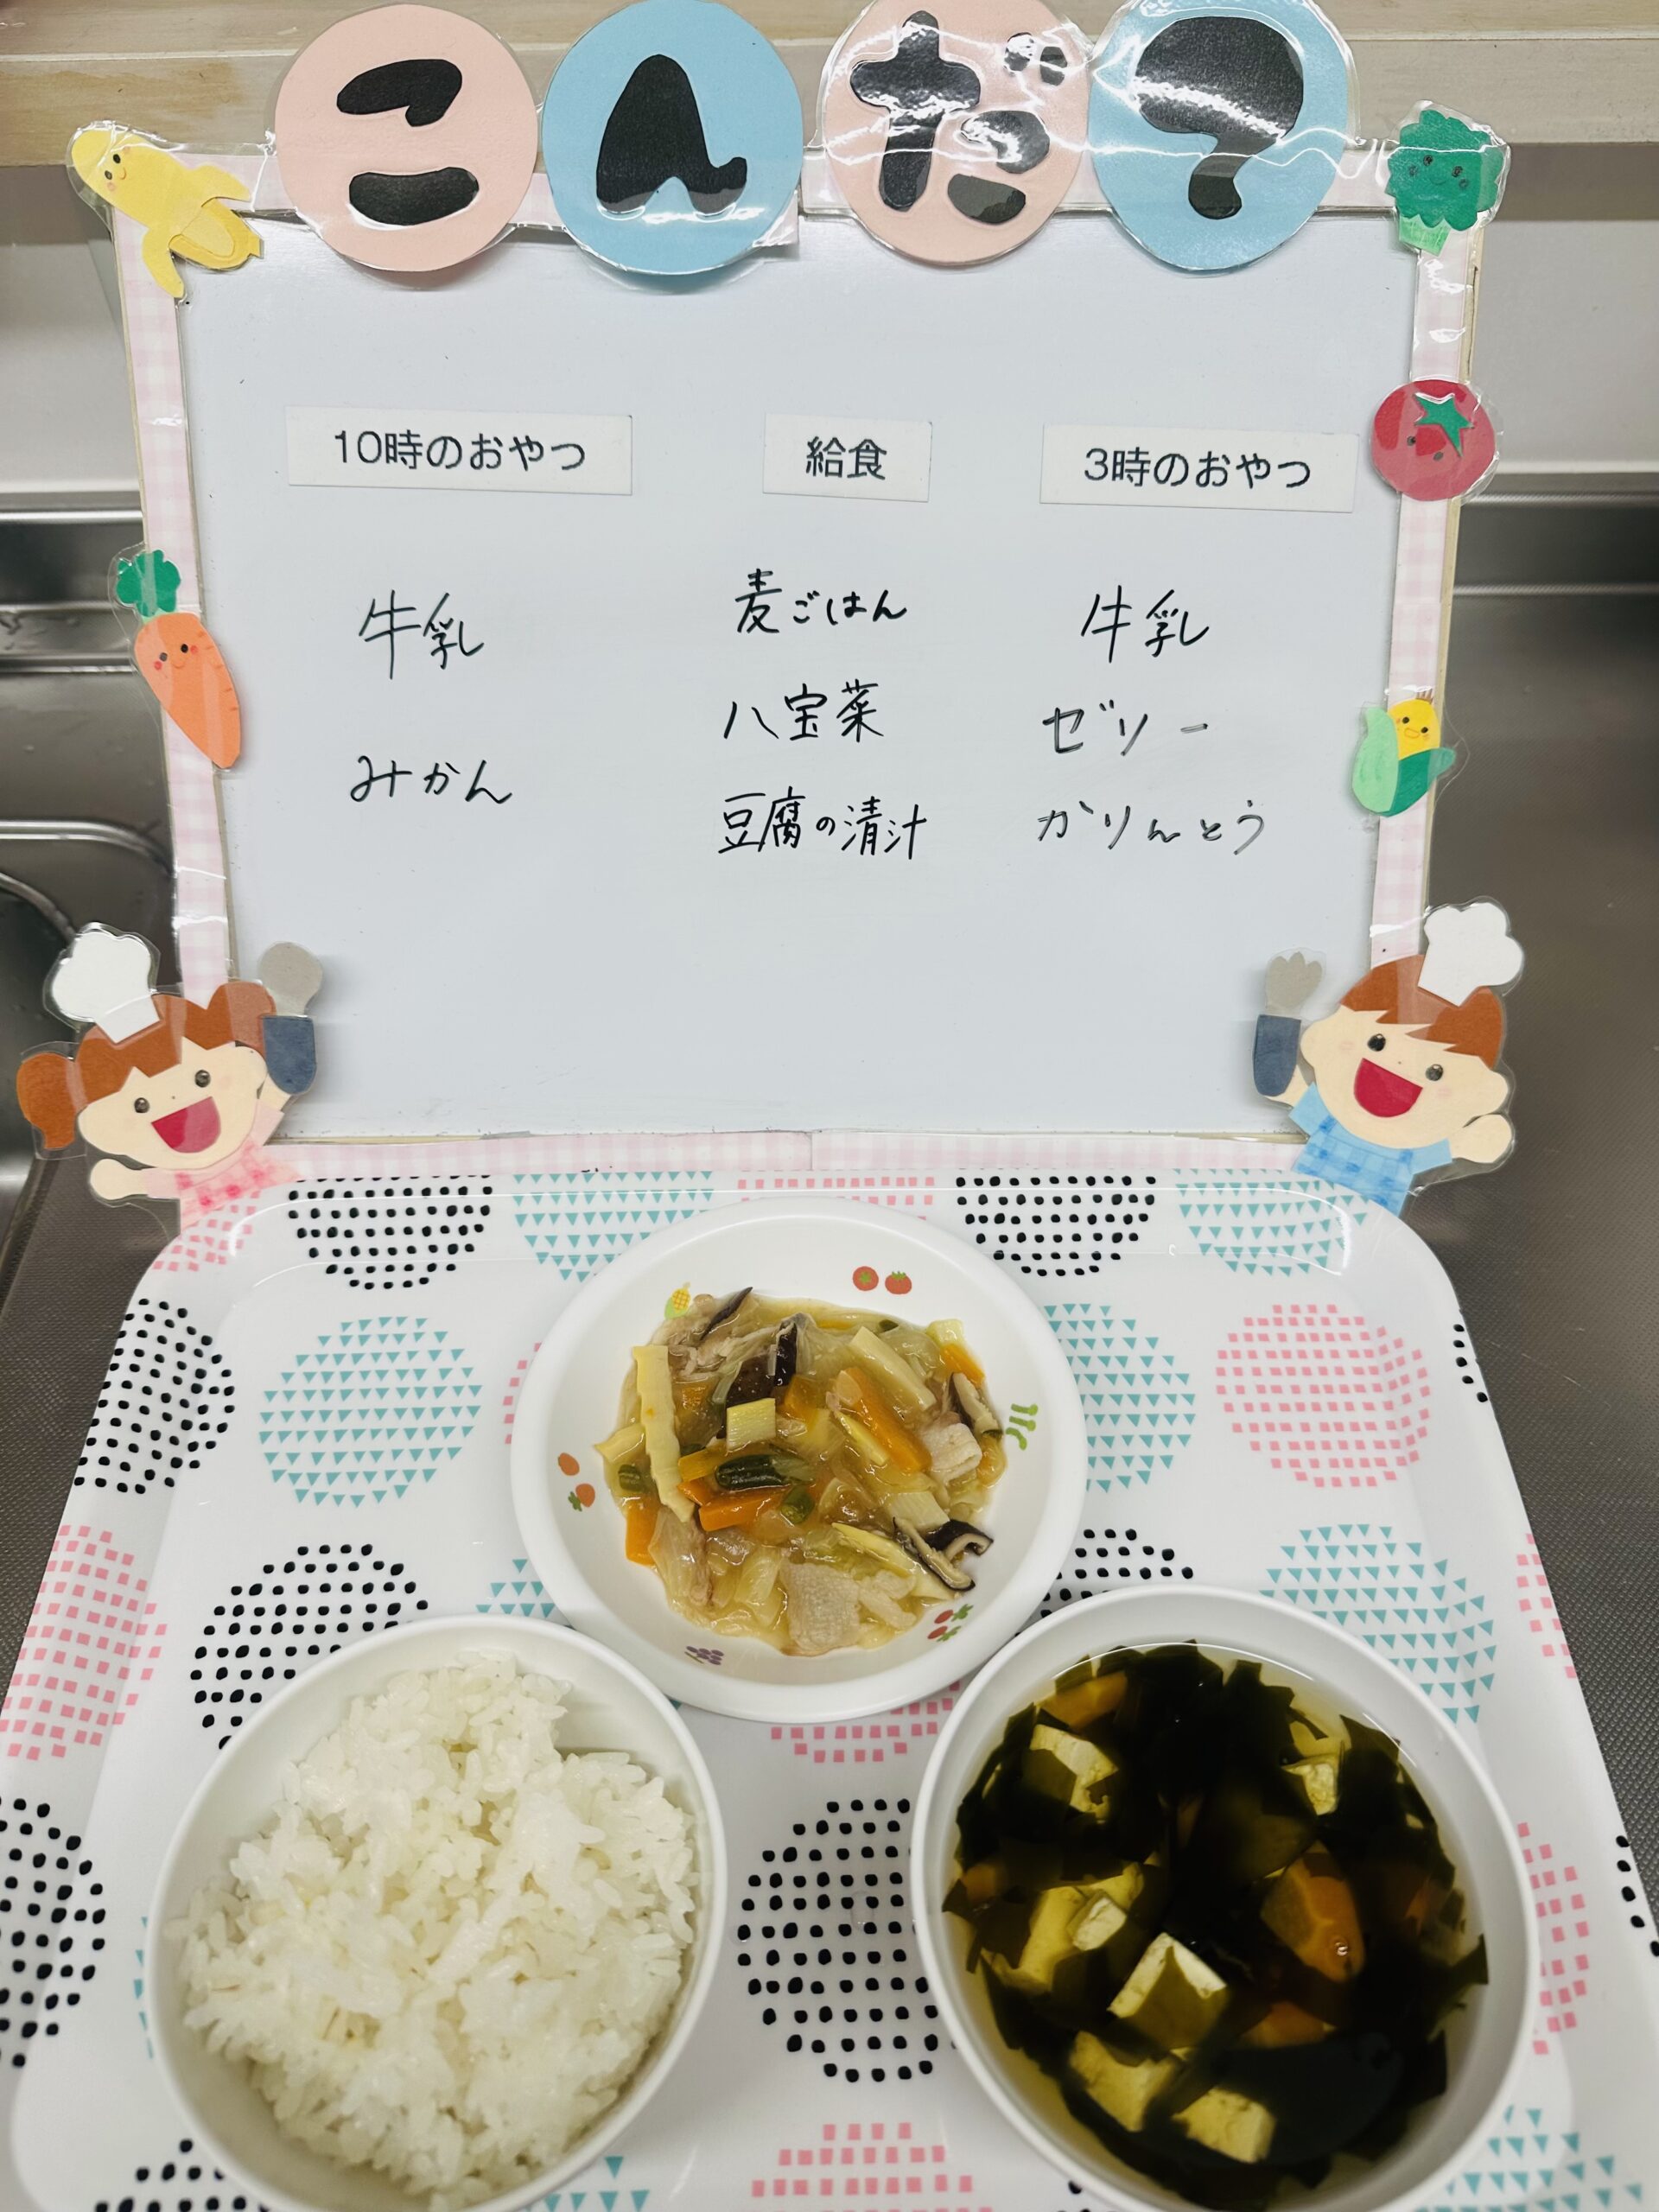 こんだて
10時のおやつ
牛乳
みかん
給食
麦ごはん
八宝菜
豆腐の清汁
3時のおやつ
牛乳
ゼリー
かりんとう